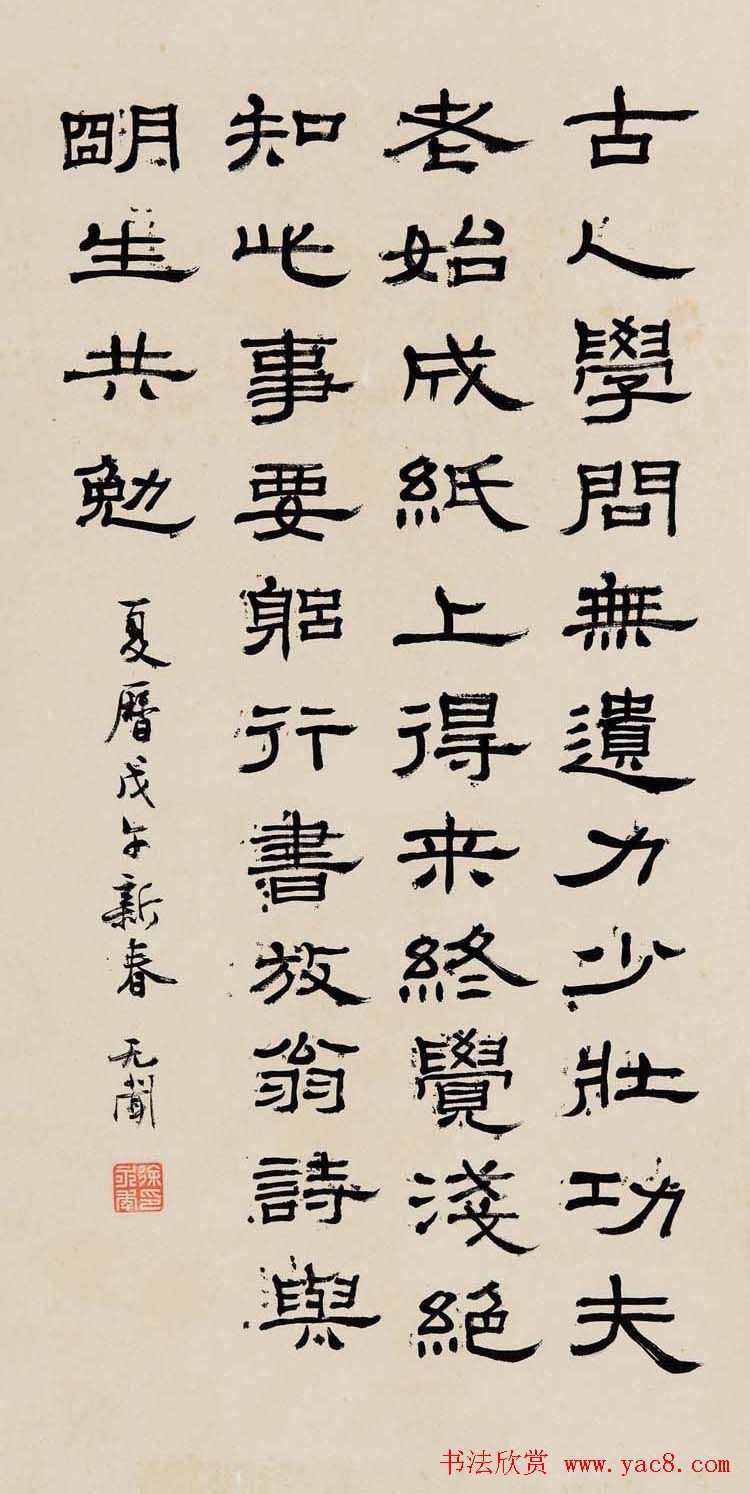 古人學問無遺力少壯功夫
老始成紙上得来終覺淺絕
知此事要躳行書放翁詩與
朙生共勉
夏曆戊午新春 无聞
书法欣赏 www.yac8.com